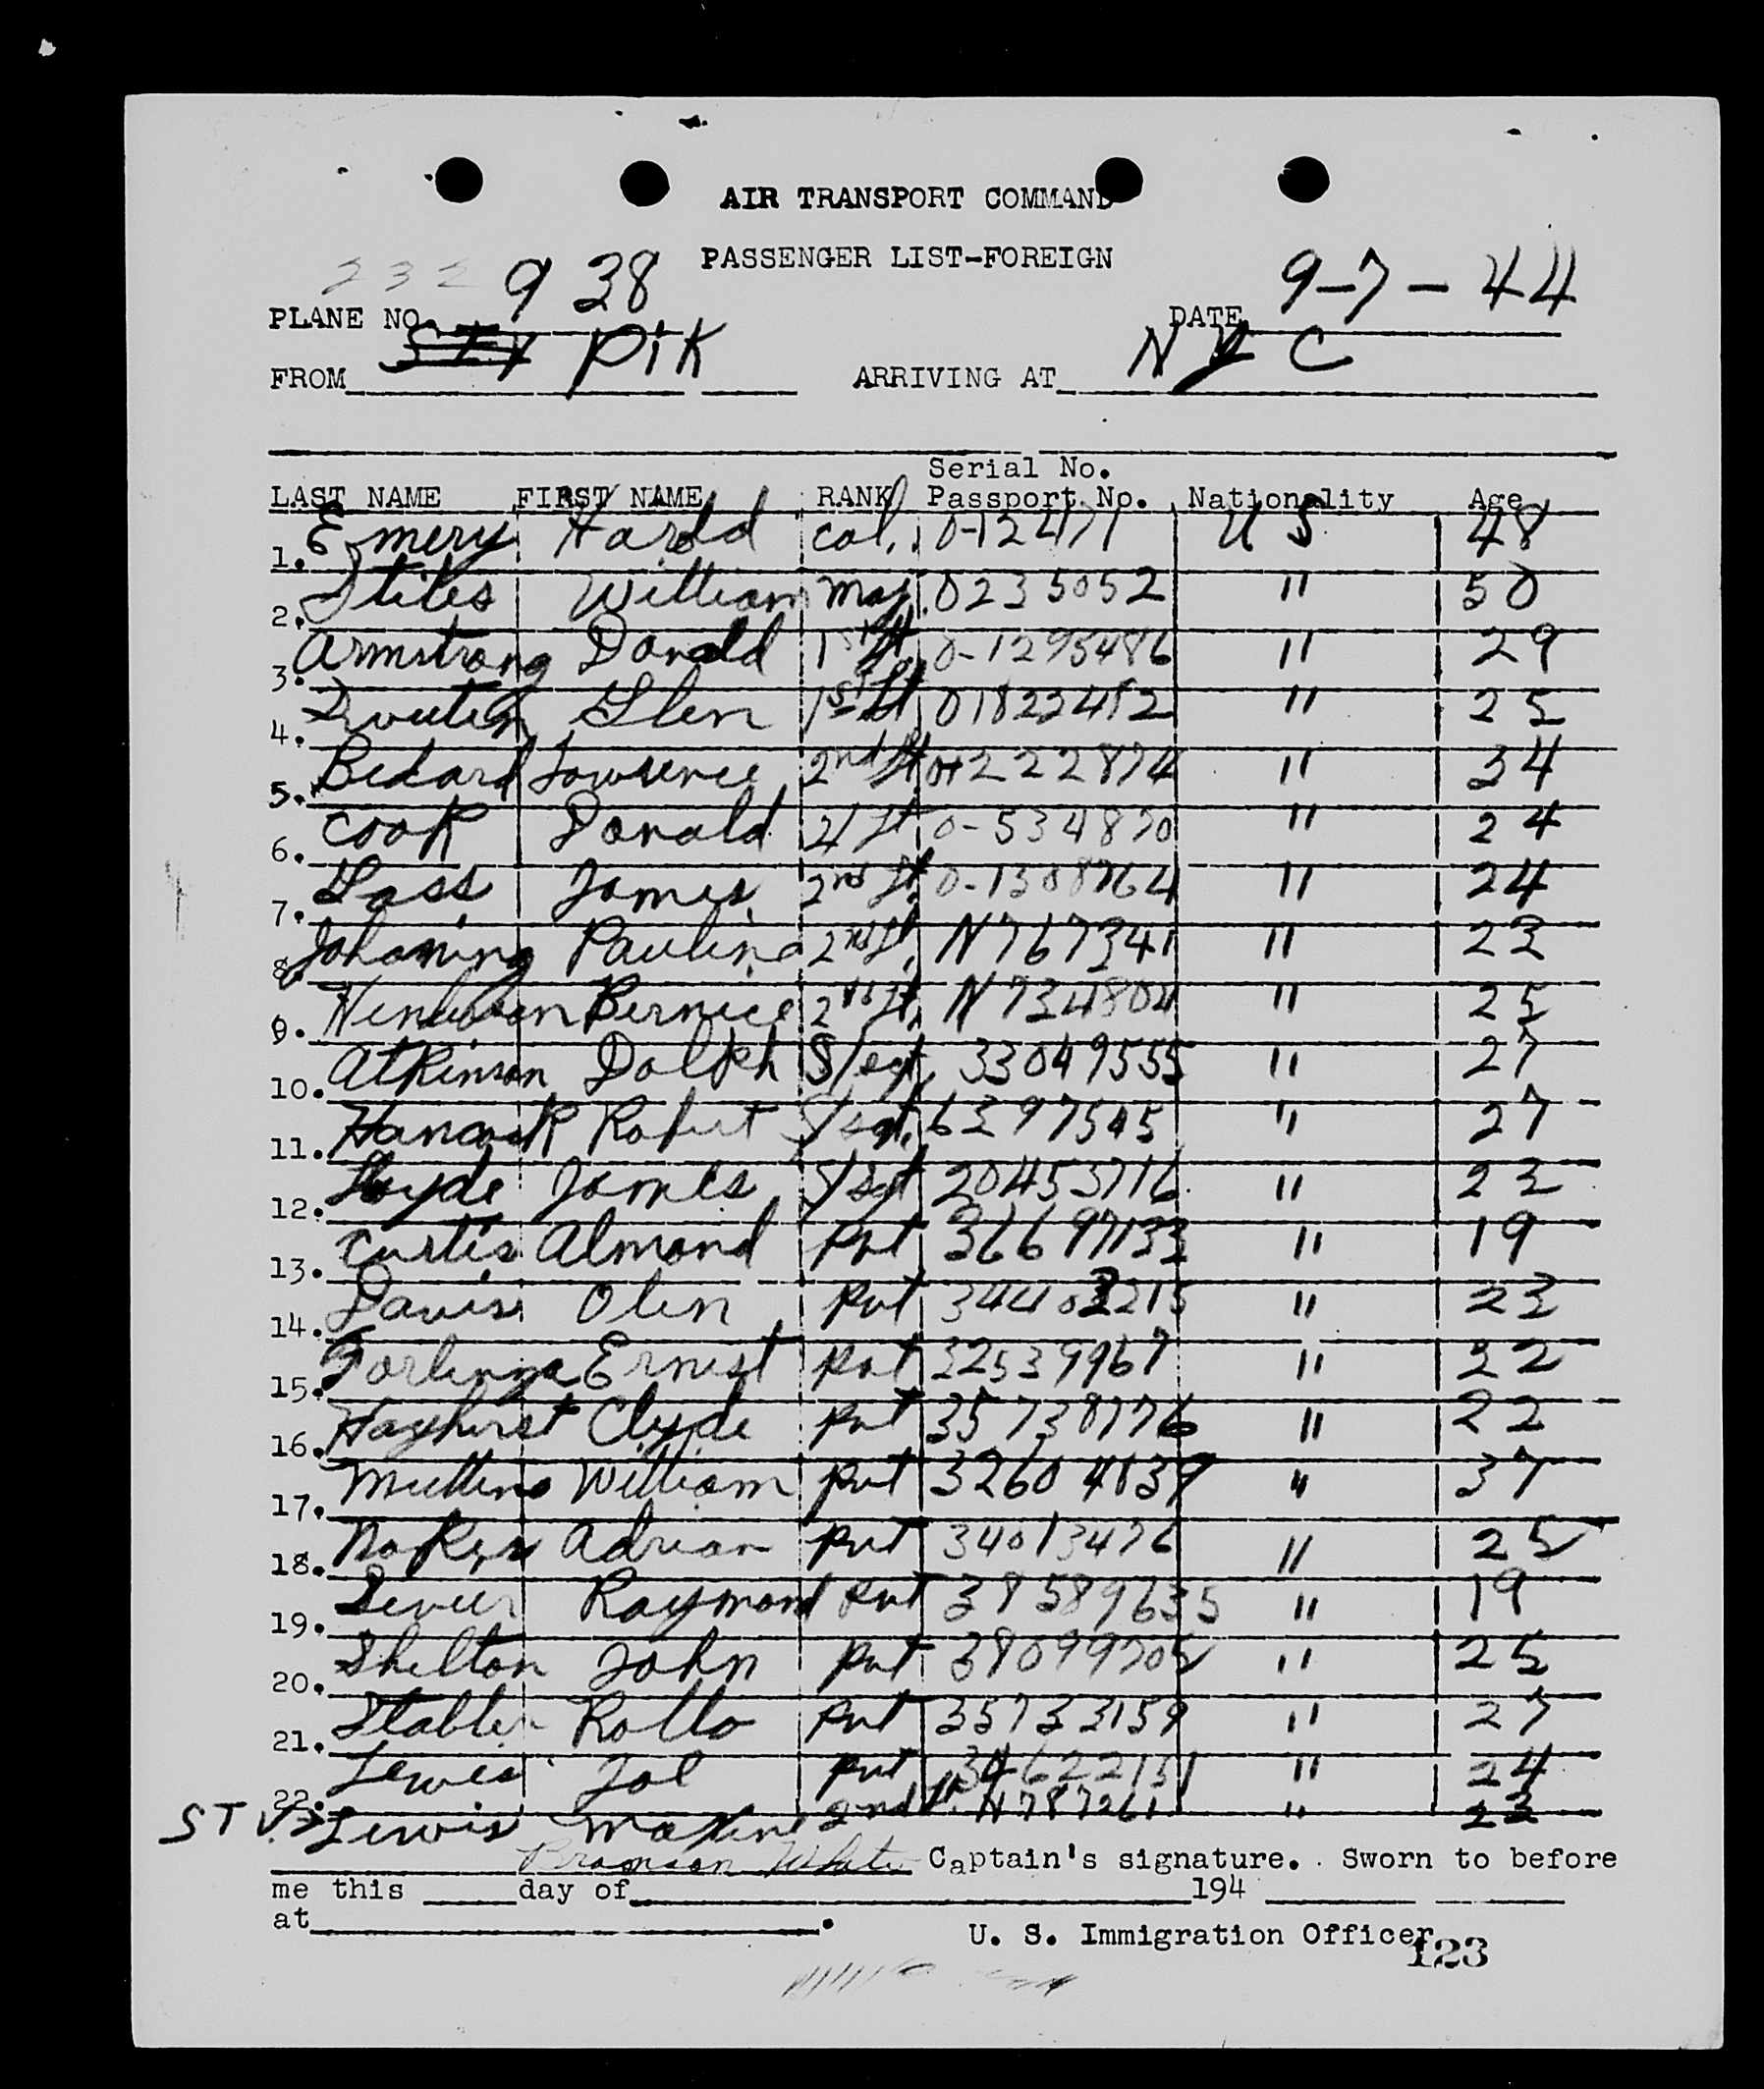 AIR TRANSPORT COMMAND
PASSENGER LIST-FOREIGN
232 9 38 9-7-44
PLANE NO. DATE
STV PiK N Y C
FROM ARRIVING AT
Serial No.
LAST NAME FIRST NAME RANK Passport No. Nationality Age
1. Emery Harold Col. 0-12471 U S 48
2. Stiles William Maj. 0235052 " 50
3. Armstrong Donald 1st Lt 0-1295486 " 29
4. Glen 1st Lt 01822412 " 25
5. Bedard Lawrence 2nd Lt " 34
6. Cook Donald 2/Lt 0-534870 " 24
7. James 2nd Lt. 0-1308764 " 24
8. Pauline 2nd Lt. N767341 " 23
9. Bernice 2nd Lt. N734804 " 25
10. Atkinson Dolph S/sgt. 33049555 " 27
11. Hancock Robert S/sgt. 6397545 " 27
12. Hyde James S/sgt 20453716 " 23
13. Curtis Almond Pvt 36697133 " 19
14. Davis Olen Pvt " 23
15. Ernest Pvt 32539967 " 22
16. Hayhurst Clyde Pvt 35738776 " 22
17. Mullins William Pvt 32604839 " 37
18. Nokes Adrian Pvt 34013476 " 25
19. Raymond Pvt 38589635 " 19
20. Shelton John Pvt 38099705 " 25
21. Stabler Rollo Pvt 35733159 " 27
22. Lewis Joe Pvt 34622151 " 24
STV Lewis Maxine 2nd Lt. N787261 " 23
White Captain's signature. Sworn to before
me this day of 194
at .
U. S. Immigration Officer
123